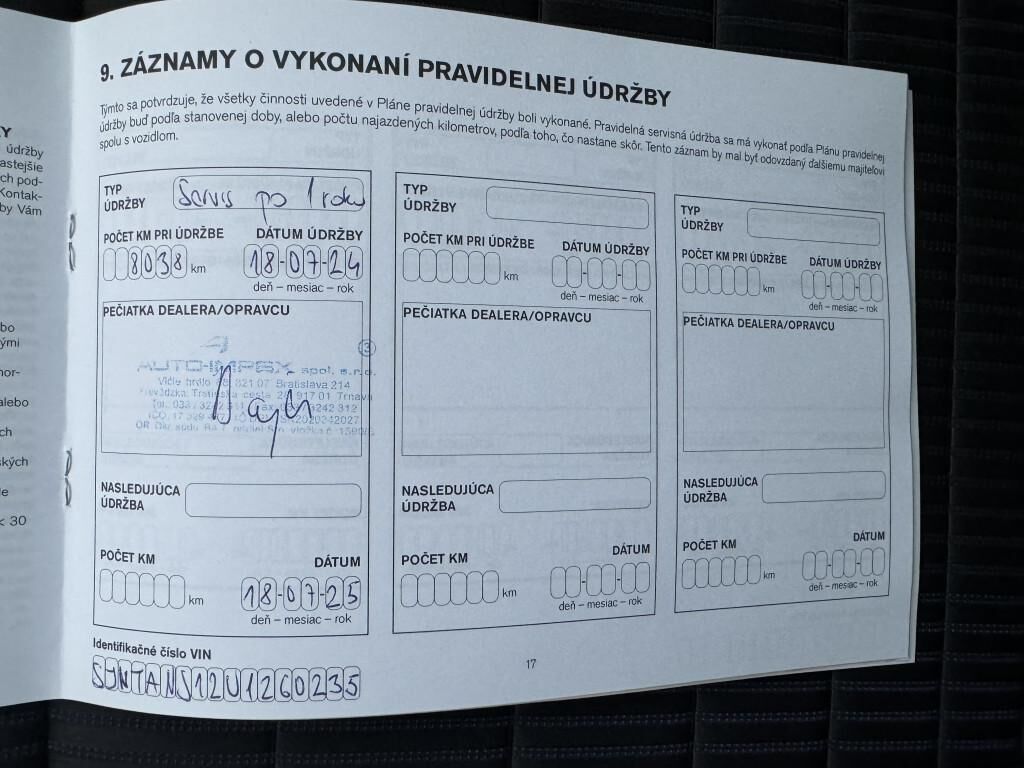 9. ZÁZNAMY O VYKONANÍ PRAVIDELNEJ ÚDRŽBY
Týmto sa potvrdzuje, že všetky činnosti uvedené v Pláne pravidelnej údržby boli vykonané. Pravidelná servisná údržba sa má vykonať podľa Plánu pravidelnej
údržby buď podľa stanovenej doby, alebo počtu najazdených kilometrov, podľa toho, čo nastane skôr. Tento záznam by mal byť odovzdaný ďalšiemu majiteľovi
spolu s vozidlom.
TYP
ÚDRŽBY
Servis po 1 roku
POČET KM PRI ÚDRŽBE
DÁTUM ÚDRŽBY
8038 km
18-07-24
deň – mesiac – rok
PEČIATKA DEALERA/OPRAVCU
3
AUTO-IMPEX spol. s r.o.
Vlčie hrdlo 821 07 Bratislava 214
cesta 917 01 Trnava
3242 312
IČO: 2020342027
OR
NASLEDUJÚCA
ÚDRŽBA
POČET KM
DÁTUM
km
18-07-25
deň – mesiac – rok
Identifikačné číslo VIN
SYNTANJ12U1260235
TYP
ÚDRŽBY
POČET KM PRI ÚDRŽBE
DÁTUM ÚDRŽBY
km
deň – mesiac – rok
PEČIATKA DEALERA/OPRAVCU
NASLEDUJÚCA
ÚDRŽBA
POČET KM
DÁTUM
km
deň – mesiac – rok
TYP
ÚDRŽBY
POČET KM PRI ÚDRŽBE
DÁTUM ÚDRŽBY
km
deň – mesiac – rok
PEČIATKA DEALERA/OPRAVCU
NASLEDUJÚCA
ÚDRŽBA
POČET KM
DÁTUM
km
deň – mesiac – rok
17
Y
údržby
astejšie
ch pod-
Kontak-
by Vám
bo
ými
nor-
alebo
ch
ských
le
< 30